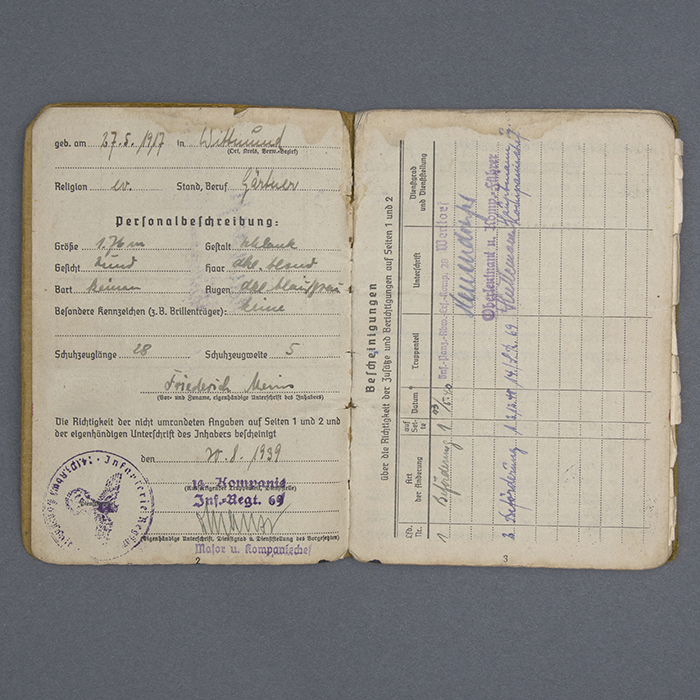 geb. am 27.5.1917 in Wittmund
(Ort, Kreis, Verw.-Bezirk)
Religion ev. Stand, Beruf Gärtner
Personalbeschreibung:
Größe 1.76 m Gestalt schlank
Gesicht rund Haar dkl. blond
Bart keinen Augen dkl. blaugrau
Besondere Kennzeichen (z. B. Brillenträger): keine
Schuhzeuglänge 28 Schuhzeugweite 5
Friederich
(Vor- und Zuname, eigenhändige Unterschrift des Inhabers)
Die Richtigkeit der nicht umrandeten Angaben auf Seiten 1 und 2
und der eigenhändigen Unterschrift des Inhabers bescheinigt
den 20.8.1939
Kompanie
(Ausfertigender Truppenteil, Dienststelle)
Inf.-Regt. 69
(Eigenhändige Unterschrift, Dienstgrad u. Dienststellung des Vorgesetzten)
Major u. Kompaniechef
2
Bescheinigungen
über die Richtigkeit der Zusätze und Berichtigungen auf Seiten 1 und 2
Lfd. Nr. Art der Änderung auf Seite Datum Truppenteil Unterschrift Dienstgrad und Dienststellung
1 Beförderung 1 Wentorf Oberleutnant u. Komp.-Führer
2. Beförderung 1 69 Hauptmann u. Kompaniechef
3